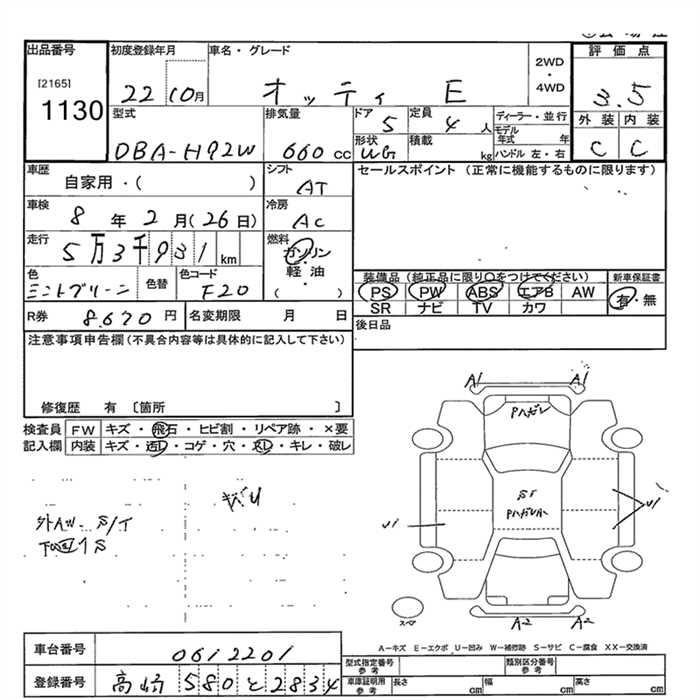 出品番号
[2165]
1130
初度登録年月
22 10月
車名・グレード
オッティ E
2WD
・
4WD
評価点
3.5
外装 内装
C C
型式
DBA-H92W
排気量
660 cc
ドア
5
定員
4 人
形状
積載
kg
ディーラー・並行
モデル年式 年
ハンドル 左・右
車歴
自家用・( )
シフト
AT
車検
8 年 2 月 (26 日)
冷房
AC
走行
5万3千931 km
燃料
ガソリン
軽油
( )
色
ミントグリーン
色替
色コード
F20
R券 8.670 円
名変期限 月 日
セールスポイント (正常に機能するものに限ります)
装備品 (純正品に限り○をつけてください)
PS PW ABS エアB AW
SR ナビ TV カワ
新車保証書
有・無
後日品
注意事項申告欄 (不具合内容等は具体的に記入して下さい)
修復歴 有 〔箇所 〕
検査員記入欄
FW キズ・飛石・ヒビ割・リペア跡・×要
内装 キズ・汚レ・コゲ・穴・スレ・キレ・破レ
A1 A1
Pハガレ
U1
U1
A2 A2
スペア
A-キズ E-エクボ U-凹み W-補修跡 S-サビ C-腐食 XX-交換済
車台番号 0612201
登録番号 高崎 580 と 2834
型式指定番号 参考
類別区分番号 参考
車庫証明用 参考
長さ cm
幅 cm
高さ cm